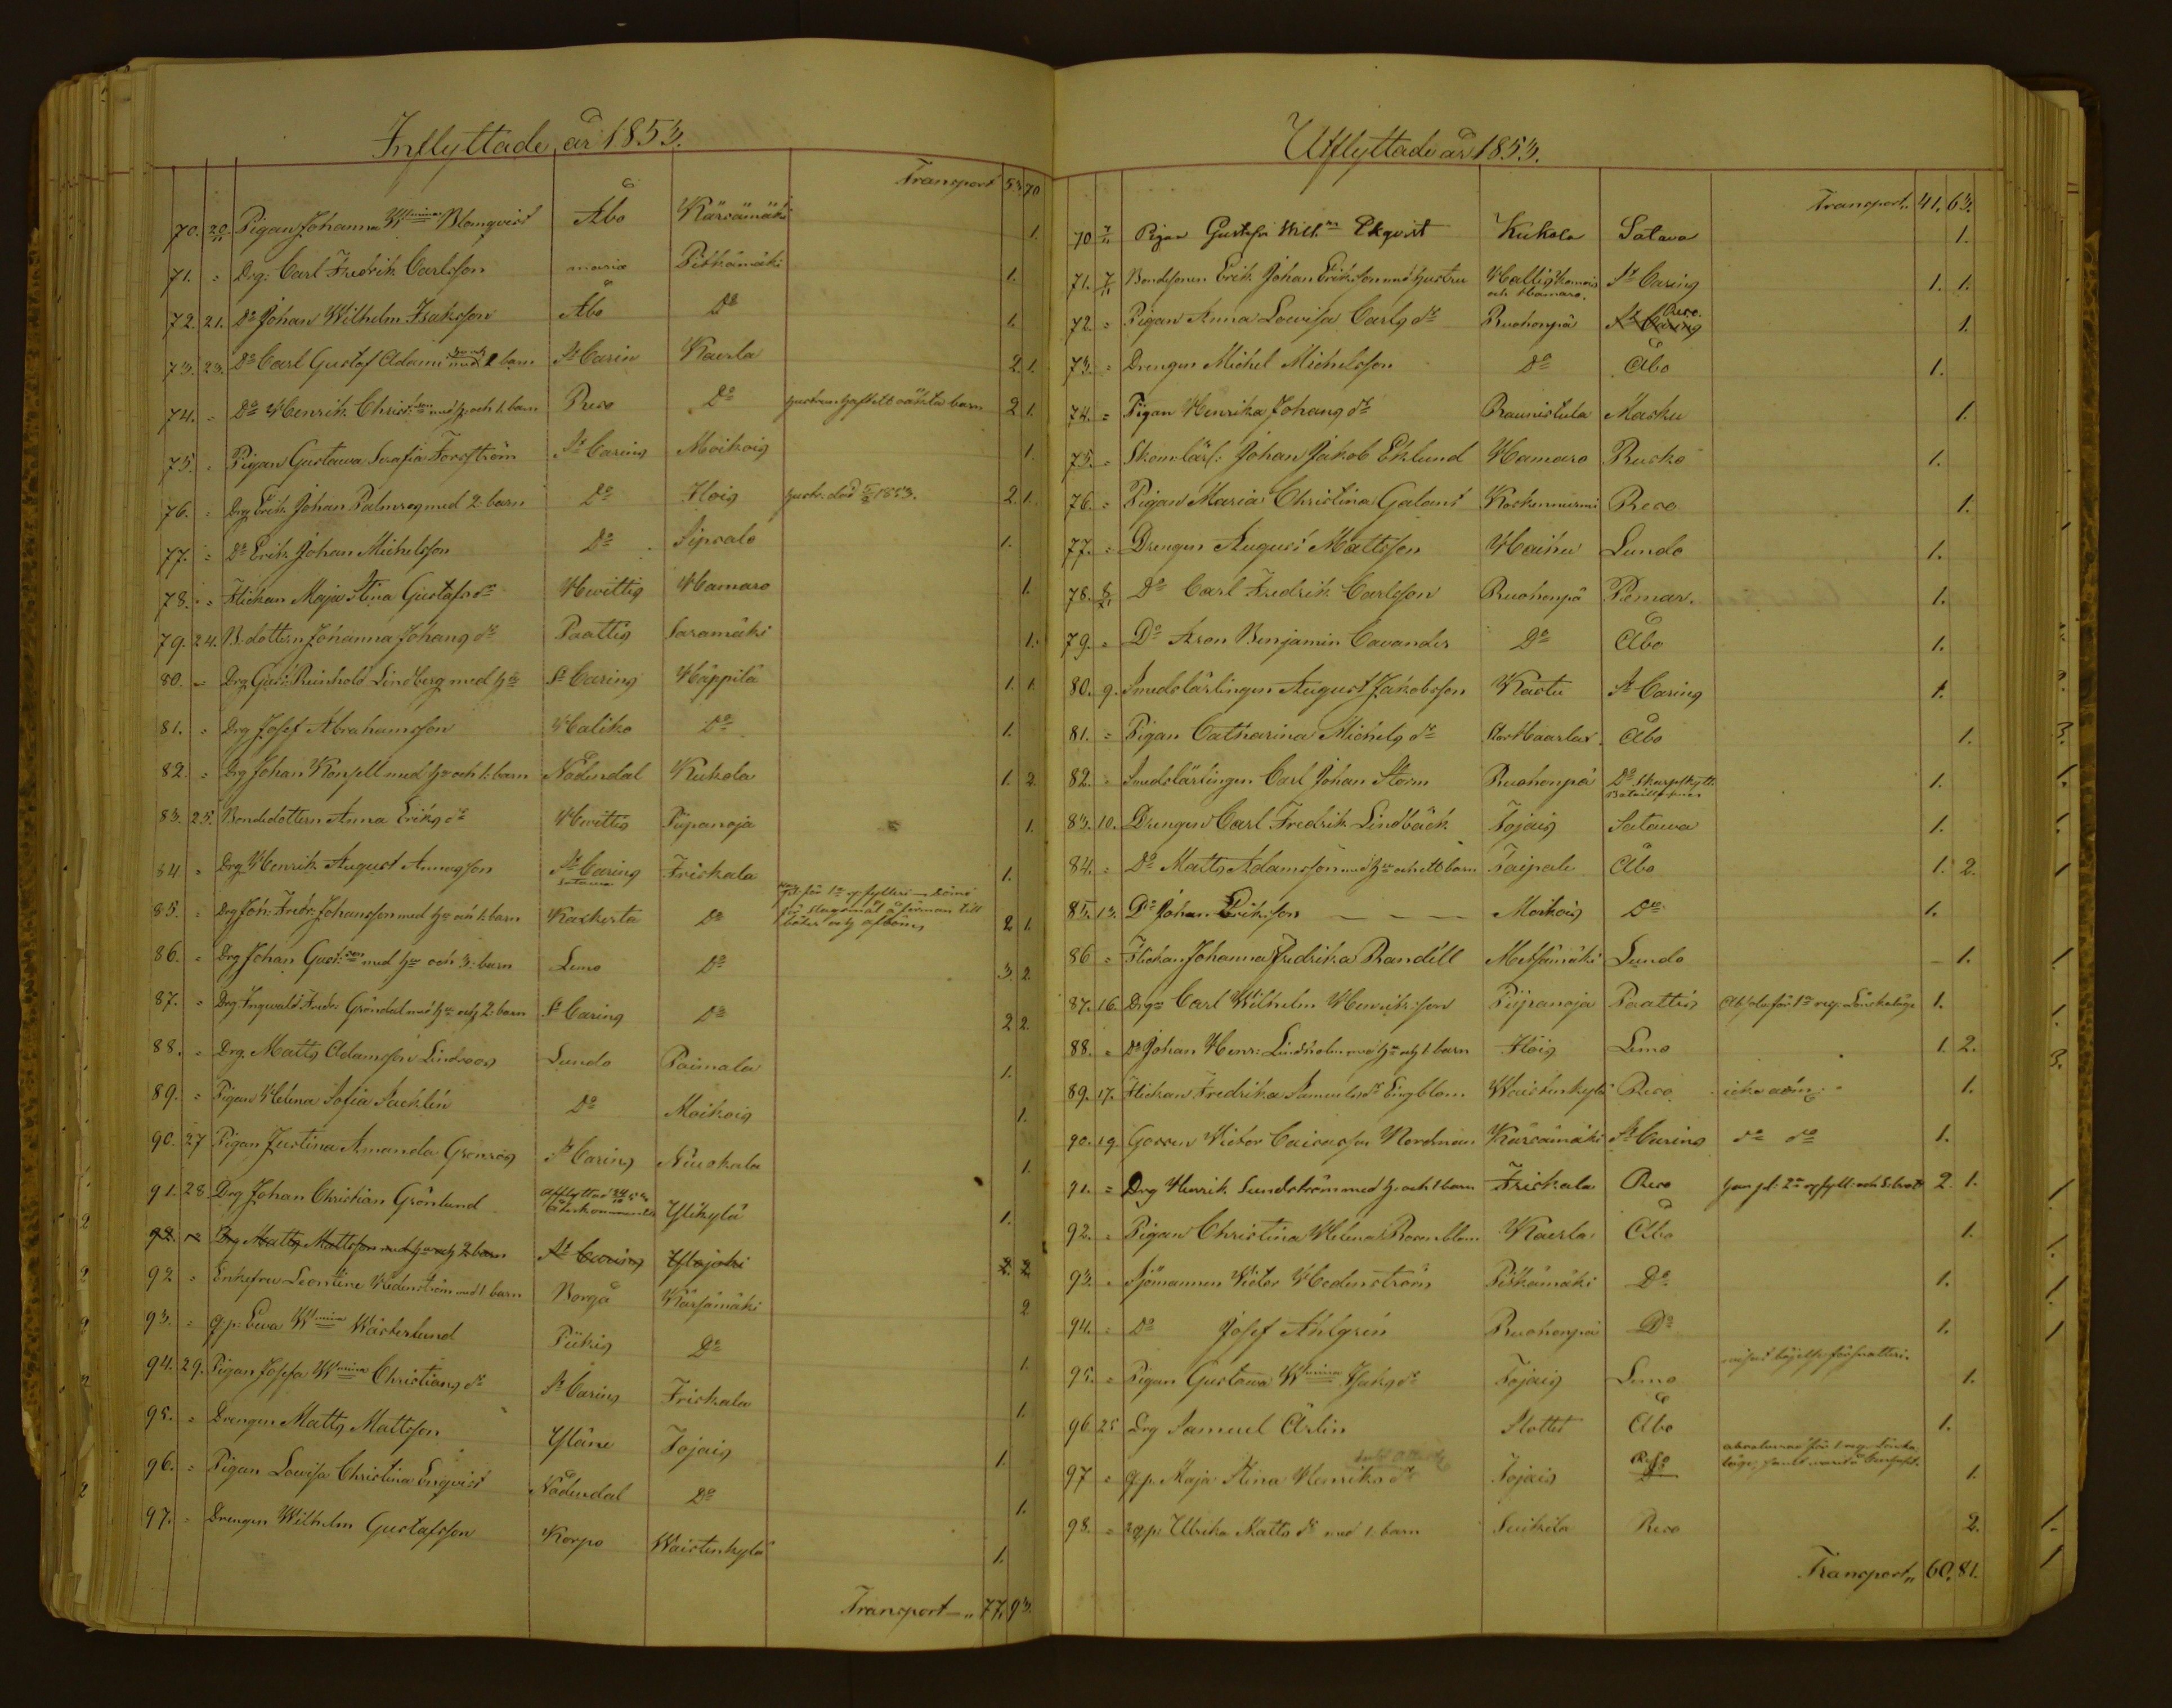 Inflyttade år 1853.
Transport 53 70
70. 20/11 Pigan Johanna Wmina Blomqvist Åbo Kärsämäki 1.
71. " Drg. Carl Fredrik Carlsson maria Pitkämäki 1.
72. 21. Do Johan Wilhelm Isaksson Åbo Do 1.
73. 23. Do Carl Gustaf Adami med barn St Carin Kaerla 2. 1.
74. " Do Henrik Christ:son med h. och 1. barn Reso Do hustrun haft ett oäkta barn 2 1.
75. " Pigan Gustawa Serafia Forsström St Carins Moikois 1.
76. " Drg Erik Johan Palmros med 2. barn Do Ilois hustr. död 1853. 2. 1.
77. " Do Erik Johan Michelsson Do Sipsalo 1.
78. " Flickan Maja Stina Gustafsdr Hvittis Hamaro 1.
79. 24. B.dottern Johanna Johansdr Paattis Saramäki 1.
80. " Drg Gust: Reinhold Lindberg med hu St Carins Häppilä 1. 1.
81. " Drg Josef Abrahamsson Haliko Do 1.
82. " Drg Johan Konsell med hu och 1. barn Nådendal Kukola 1. 2.
83. 25. Bondedottern Anna Eriksdr Hvittis Piipanoja 1.
84 " Drg Henrik August Annasson St Carins Satawa Friskala 1.
85. " Drg Joh: Fredr: Johansson med hu och 1. barn Kaskerta Do för 1a för slagsmål å förman till böter och afbön 2 1.
86. " Drg Johan Gust:son med hu och 3. barn Lemo Do 3 2
87. " Drg Ingewald Fredr: Gröndal med hu och 2. barn St Carins Do 2 2.
88. " Drg. Matts Adamsson Lindroos Lundo Paimala 1.
89. " Pigan Helena Sofia Sacklén Do Moikois 1.
90. 27 Pigan Justina Amanda Grönros St Carins Niuskala 1.
91. 28 Drg Johan Christian Grönlund Afflyttad Återkommande Ylikylä 1.
92. " Drg Matts Mattsson med hu och 2 barn St Carins Ylajoki 2. 2.
92 " Enkefru Leontine Wedenström med 1. barn Borgå Kärsämäki 2
93. " q.p. Eva Wmina Wästerlund Piikis Do 1.
94. 29. Pigan Josefa Wmina Christiansdr St Carins Friskala 1.
95. " Drengen Matts Mattsson Yläne Jojais 1.
96. " Pigan Lovisa Christina Engvist Nådendal Do 1.
97. " Drengen Wilhelm Gustafsson Korpo Waistenkylä 1.
Transport " 77, 93.
Utflyttade år 1853.
Transport " 41, 63.
70 7/11 Pigan Gustafva Wilh:na Ekqvist Kukola Satava 1.
71. 7/11 Bondesonen Erik Johan Eriksson med hustru Hallis komois och Hamaro. St Carins 1. 1.
72. " Pigan Anna Lovisa Carlsdr Ruohonpä St Carins Reso. 1.
73. " Drengen Michel Michelsson Do Åbo 1.
74. " Pigan Henrika Johansdr Raunistula Masku 1.
75. " Skomlärl: Johan Jakob Eklund Hamaro Rusko 1.
76. " Pigan Maria Christina Galant Koskennurmi Reso 1.
77. " Drengen August Mattsson Haihu Lundo 1.
78. 8/11 Do Carl Fredrik Carlsson Ruohonpä Pemar. 1.
79. " Do Aron Benjamin Cavander Do Åbo 1.
80. 9. Smedslärlingen August Jakobsson Kastu St Carins 1.
81. " Pigan Catharina Michelsdr Stor Haarla Åbo 1.
82. " Smedslärlingen Carl Johan Storm Ruohonpä Do Skarpskytt: Bataillonen 1.
83. 10. Drengen Carl Fredrik Lindbäck Jojais Satawa 1.
84. " Do Matts Adamsson med hu och ett barn Taipale Åbo 1. 2.
85. 13. Do Johan Eriksson Moikois Do 1.
86 " Flickan Johanna Fredrika Randéll Metsämäki Lundo 1.
87. 16. Drg Carl Wilhelm Henriksson Piipanoja Paattis Absolv. för 1a reg. Lönskaläge 1.
88. " Do Johan Henr: Lindholm med hu och 1. barn Ilois Lemo 1. 2.
89. 17. Flickan Fredrika Samuelsdr Engblom Waistenkylä Reso icke adm: 1.
90. 19. Gossen Victor Caicasson Nordman Kärsämäki St Carins do do 1.
91. " Drg Henrik Sundström med h. och 1 barn Friskala Reso 2 1.
92. " Pigan Christina Helena Rosenblom Kaerla Åbo 1.
93. " Sjömannen Victor Hedenström Pitkämäki Do 1.
94. " Do Josef Ahlgrén Ruohonpä Do 1.
95. " Pigan Gustawa Wmina Isaksdr Jojais Lemo 1.
96 25 Drg Samuel Ärlin Slottet Åbo 1.
97 " q.p. Maja Stina Henriksdr Jojais Reso absolverad för 1 reg. Lönska läge, 1.
98. " q.p. Ulrika Mattsdr med 1. barn Suikila Reso 2.
Transport " 60, 81.